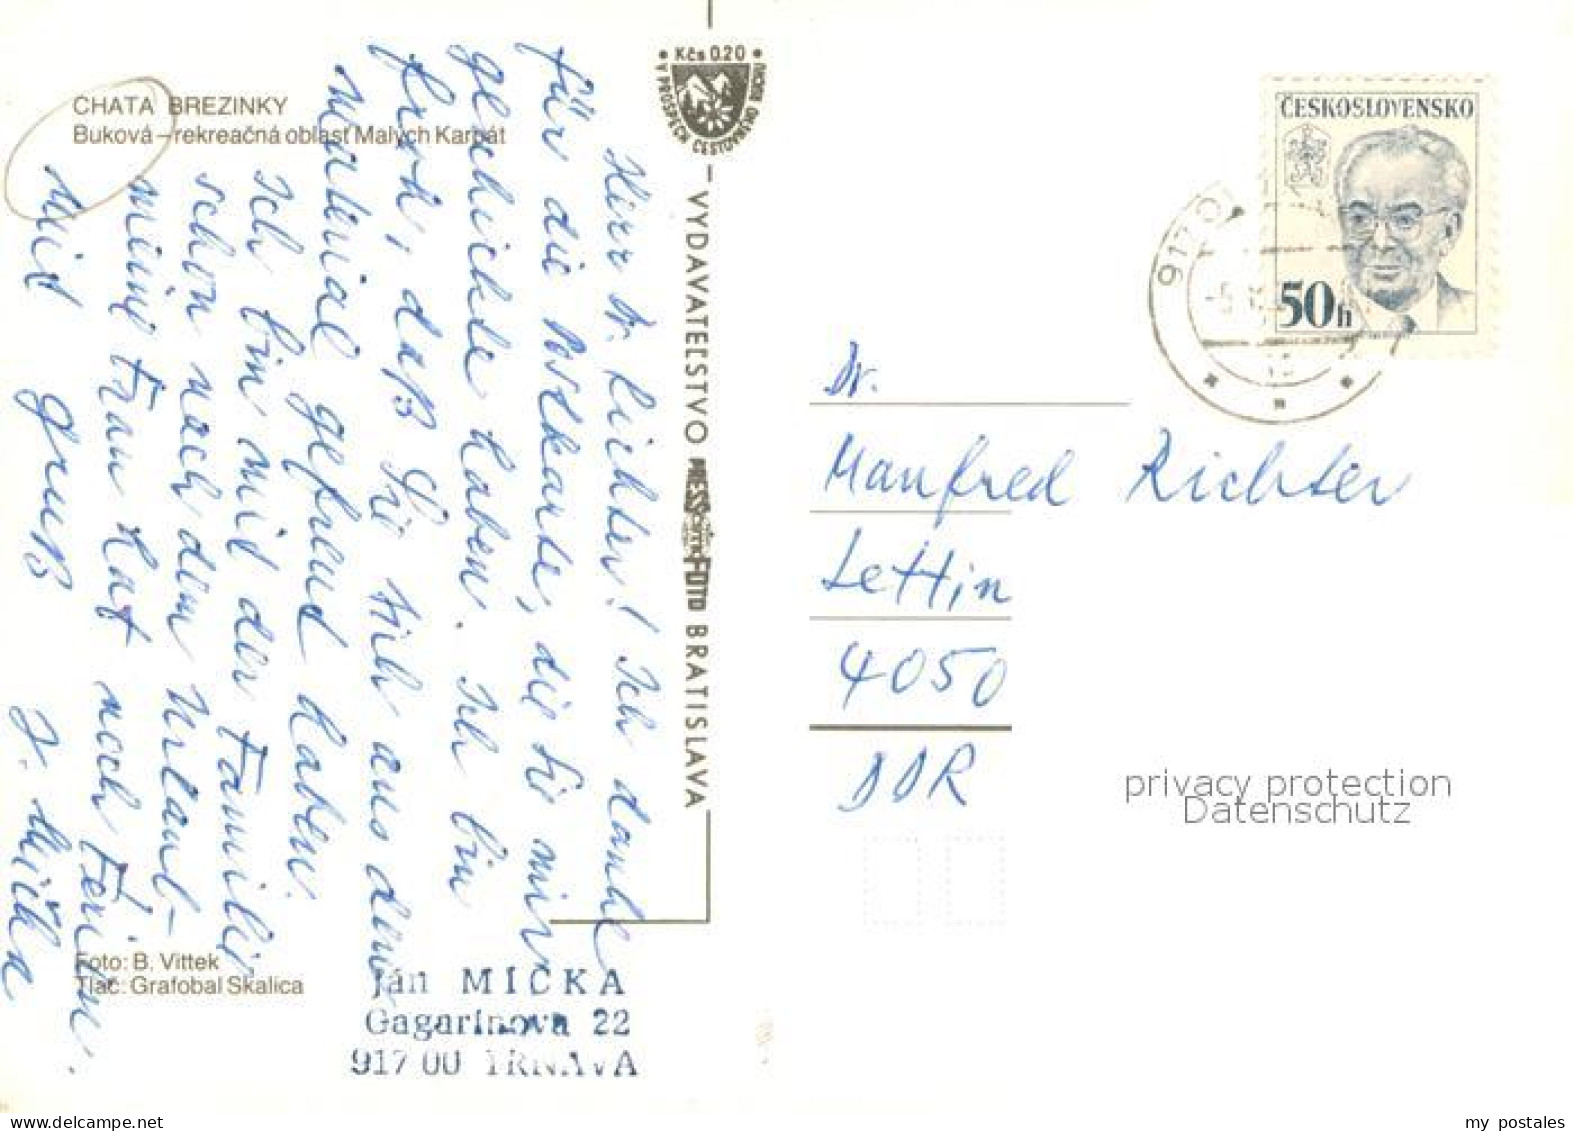 CHATA BREZINKY
Buková – rekreačná oblasť Malých Karpát
Herr Dr. Richter! Ich danke
für die Postkarte, die Sie mir
geschickte haben. Ich bin
froh, daß Sie sich aus dem
Material gefreut haben.
Ich bin mit der Familie
schon nach dem Urlaub –
meine Frau hat noch Ferien.
Mit gruß J. Mička
Foto: B. Vittek
Tlač: Grafobal Skalica
Ján MIČKA
Gagarinova 22
917 00 TRNAVA
Kčs 0.20
V PROSPECH CESTOVNÉHO RUCHU
VYDAVATEĽSTVO PRESSFOTO BRATISLAVA
ČESKOSLOVENSKO
50h
917 0
Dr.
Manfred Richter
Lettin
4050
DDR
privacy protection
Datenschutz
www.delcampe.net
my_postales